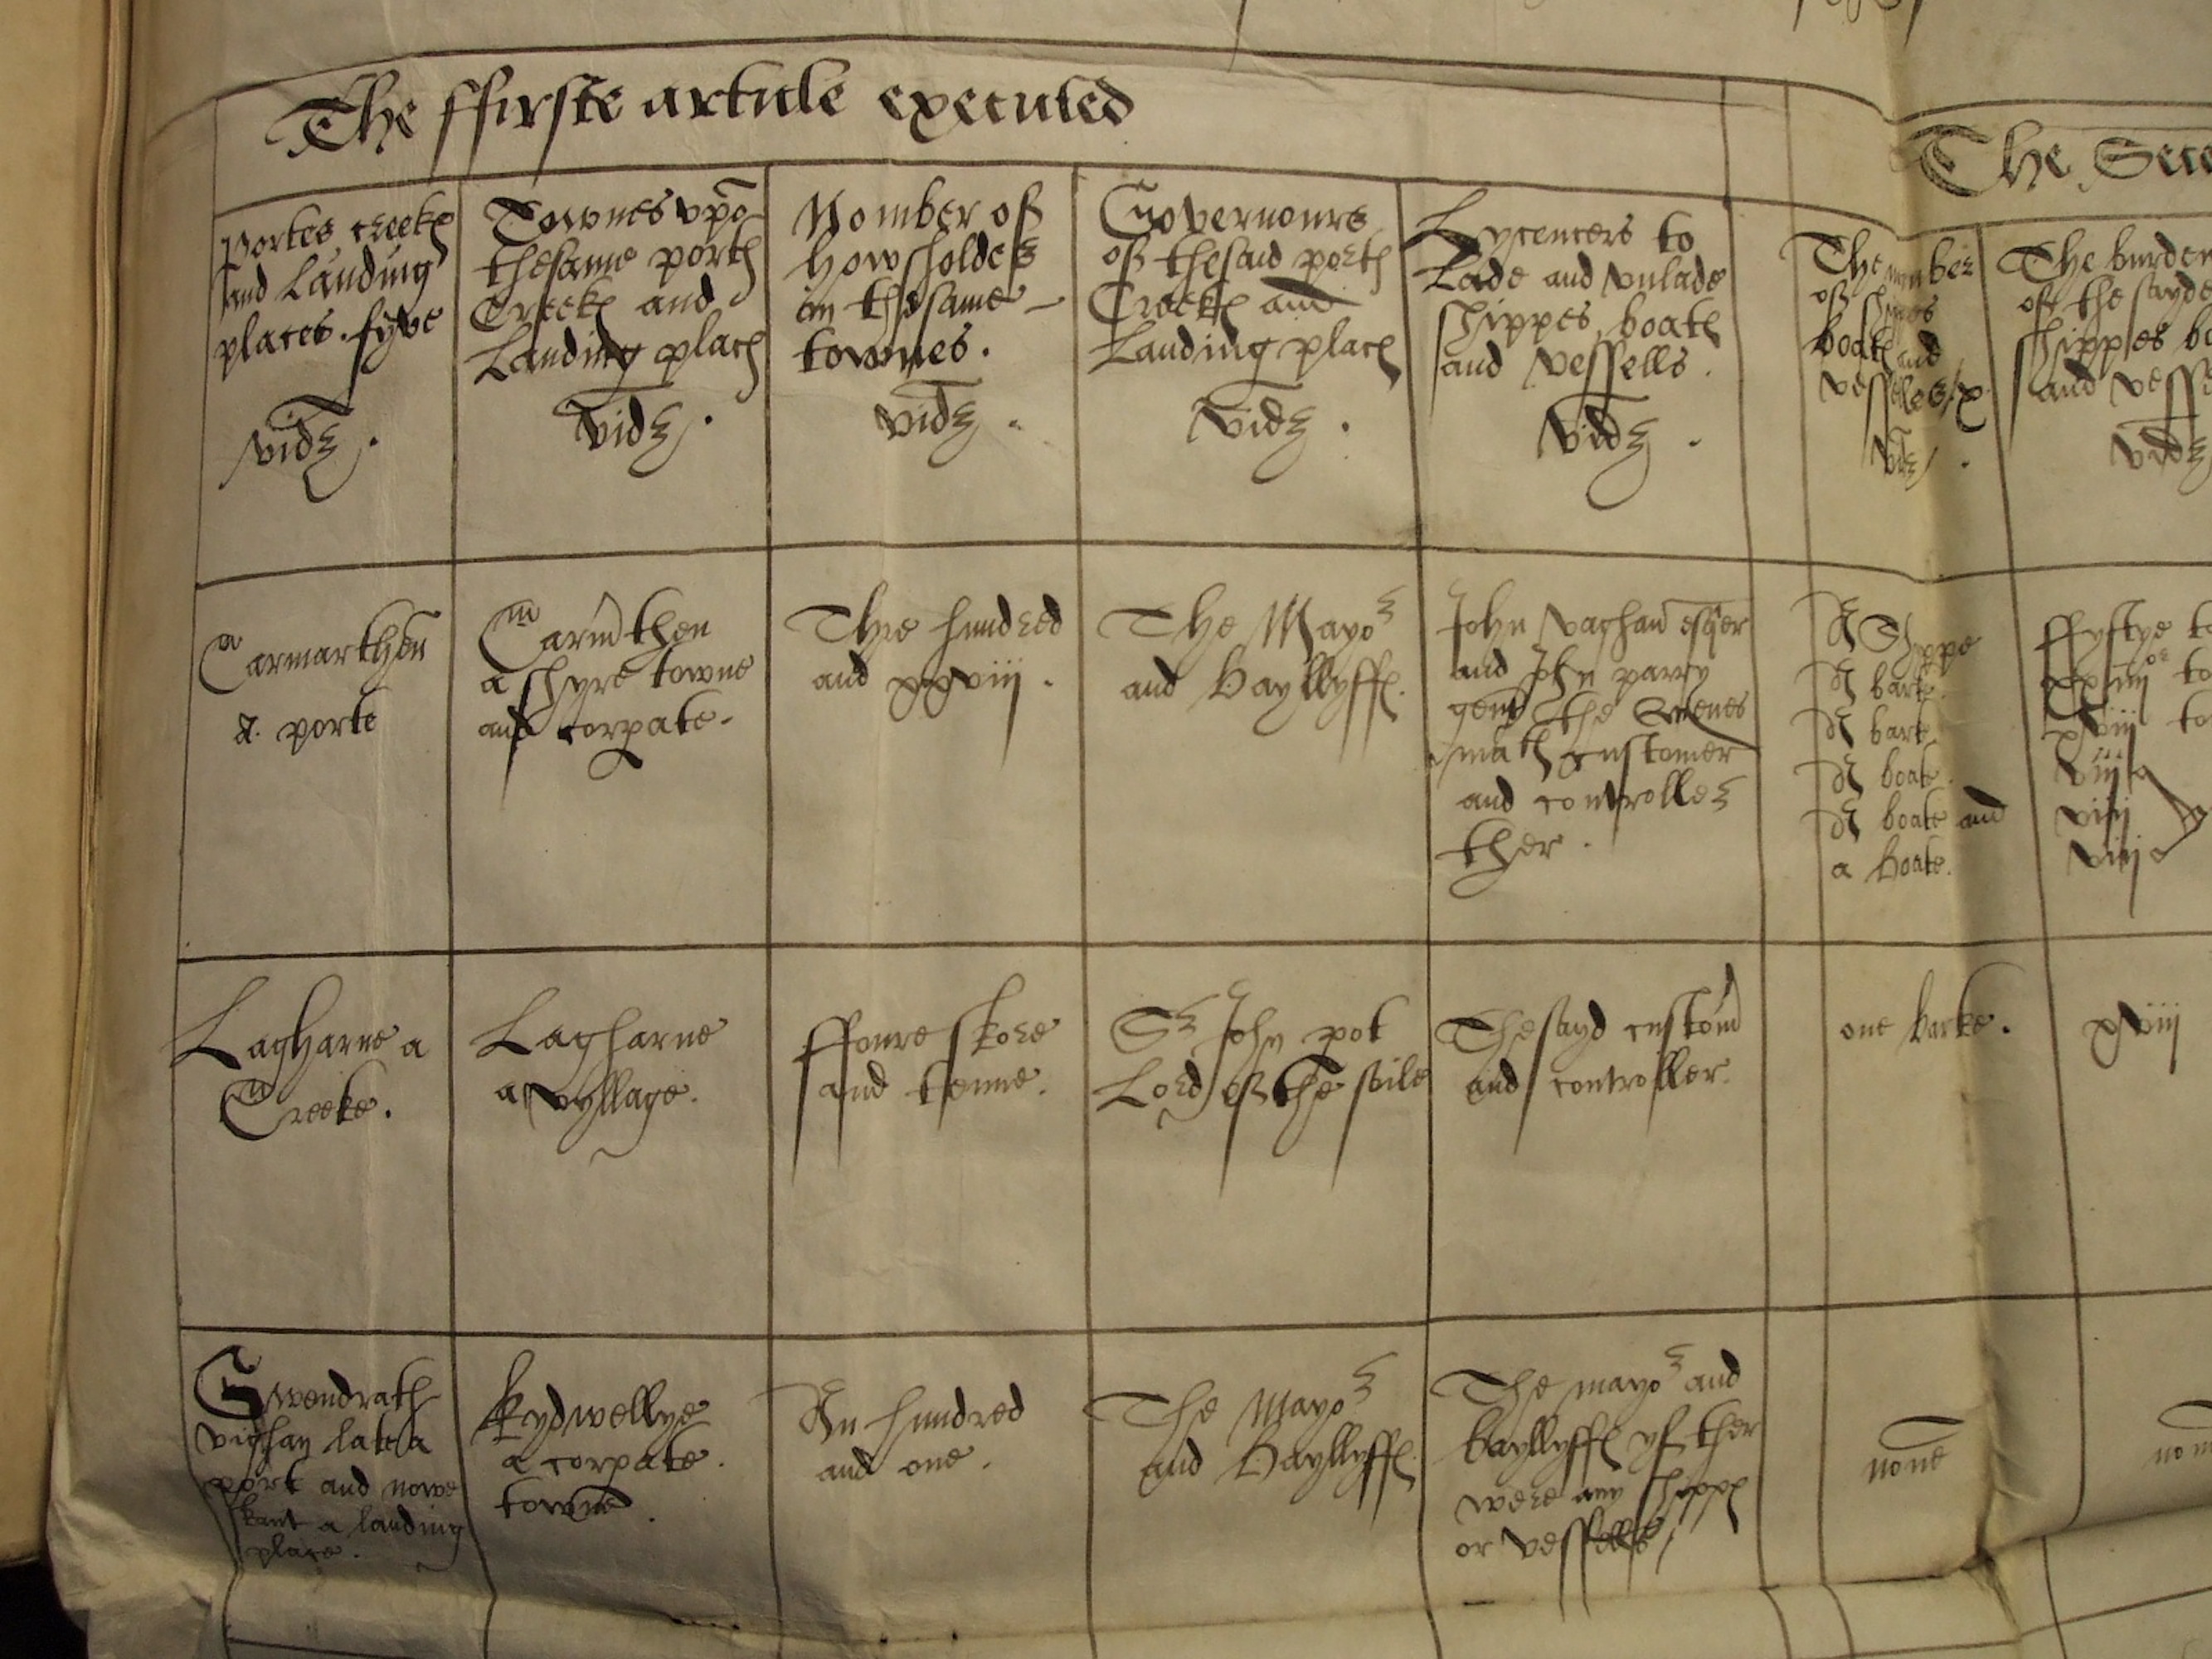 The ffirste article executed
The Sec
Portes creekes
and Landing
places. fyve
vidz.
Townes upō
thesame portes
Creekes and
Landing places
vidz.
Nomber of
howsholdes
in thesame
townes.
vidz.
Governours
of thesaid portes
Creekes and
Landing places
vidz.
Lycencers to
Lade and unlade
shippes boates
and vessells.
vidz.
The number
of shippes
boates and
vessells / x
vidz.
The burden
of the sayde
shippes bo
and vesse
vidz
Carmarthen
A porte
Carmthen
a shyre towne
and corpate.
Thre hundred
and xxviij.
The Mayor
and Bayllyffes.
John Vaghan esqer
and John parry
gent the Quenes
maties customer
and controller
ther.
A Shippe
A barke.
A barke
A boate.
A boate and
a boate.
ffyftye to
xxiiijor to
xviij to
viij
viij
viij
Lagharne a
Creeke.
Lagharne
a vyllage.
ffoure skore
and tenne.
Sr John pot
Lord of the soile
The sayd custom
and controller.
one barke.
xviij
Gwendrath
vighan late a
port and nowe
skant a landing
place.
kydwellye
a corpate.
towne.
An hundred
and one.
The Mayor
and Bayllyffes.
The mayor and
bayllyffes yf ther
were any shippes
or vessells /
none
none